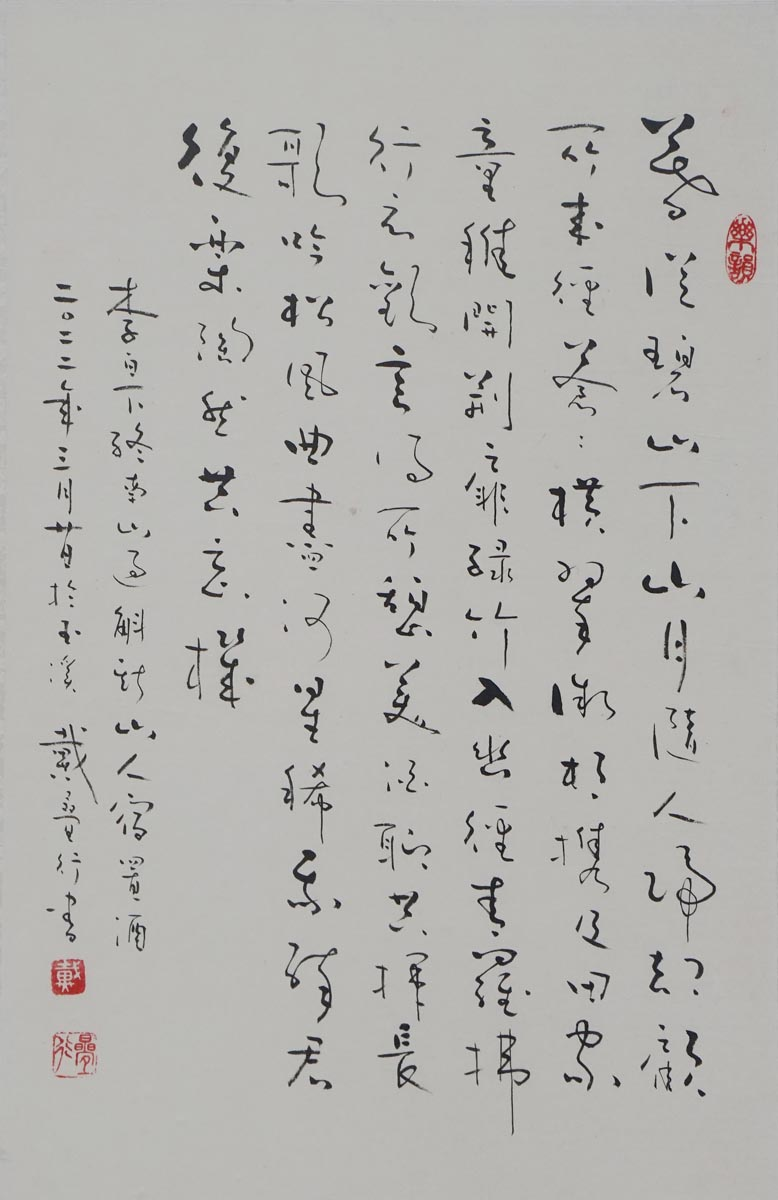 樂韻
暮從碧山下山月隨人歸却顧
所來徑蒼々橫翠微相携及田家
童稚開荊扉綠竹入幽徑青蘿拂
行衣歡言得所憩美酒聊共揮長
歌吟松風曲盡河星稀我醉君
復樂陶然共忘機
李白下終南山過斛斯山人宿置酒
二〇二二年三月廿日於玉溪 戴曼行書
戴